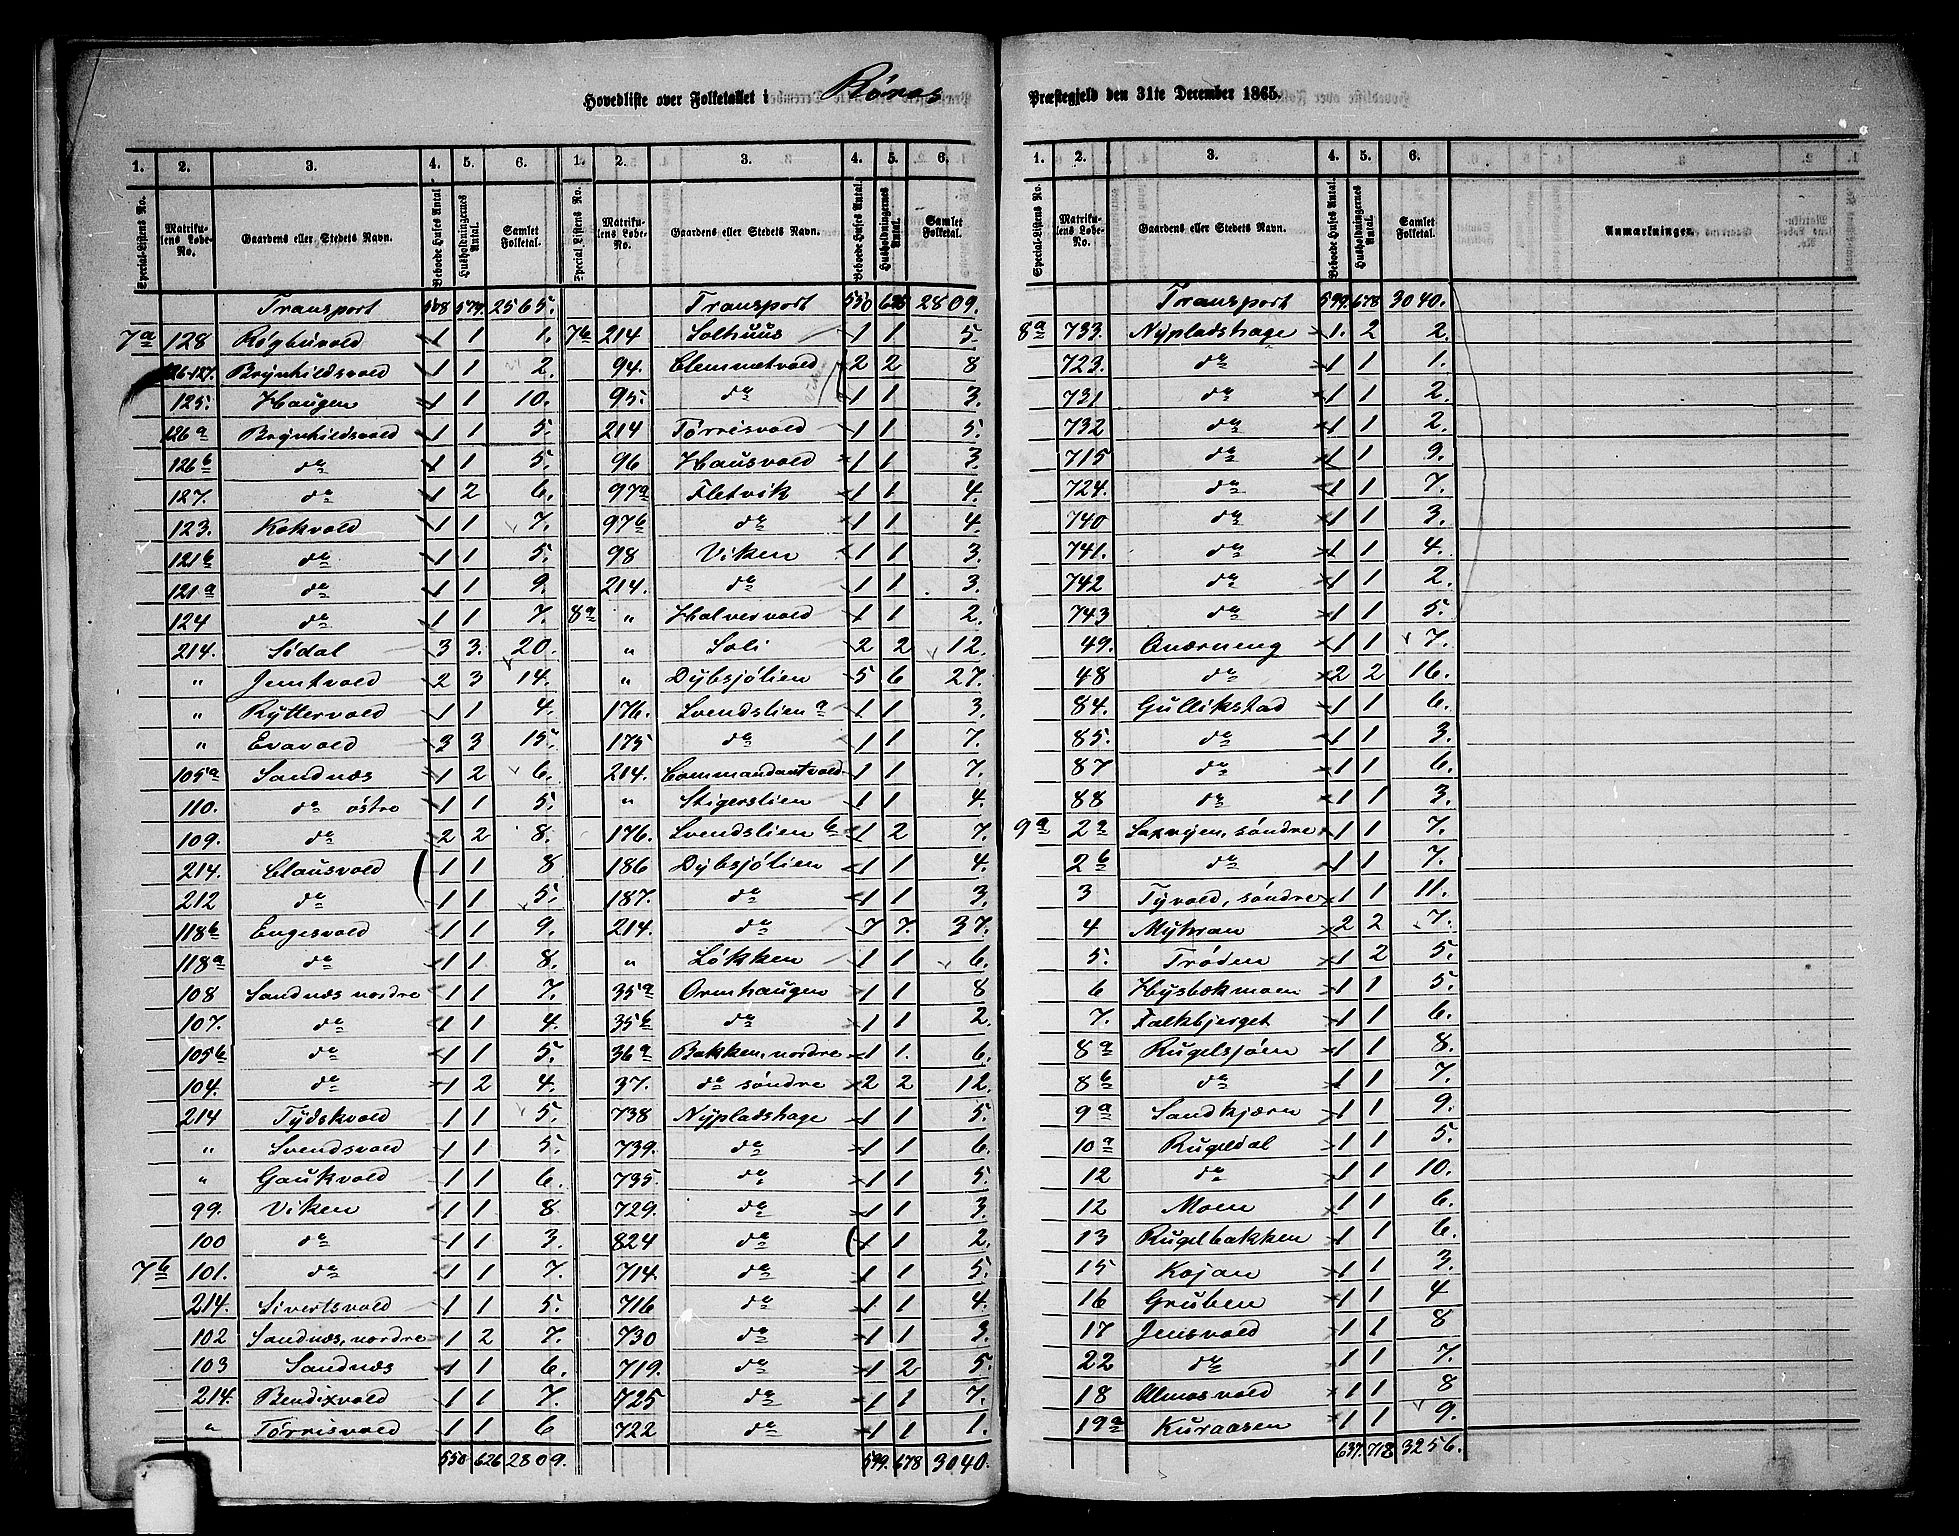 Hovedliste over Folketallet i Røros Præstegjeld den 31te December 1865.
1. 2. 3. 4. 5. 6. 1. 2. 3. 4. 5. 6.
Special-Listens No. Matrikulens Løbe-No. Gaardens eller Stedets Navn. Beboede Huses Antal Husholdningernes Antal. Samlet Folketal. Special Listens No. Matrikulens Løbe-No. Gaardens eller Stedets Navn. Beboede Huses Antal. Husholdningernes Antal. Samlet Folketal.
Transport 508 579. 2565. Transport 550 626 2809.
7a 128 Røgbuvold 1 1 1. 7b 214 Solhuus 1 1 5.
126-127. Brynhildsvold 1 1 2. 94. Clemmetvold 2 2 8
125. Haugen 1 1 10. 95. do 1 1 3.
126a Brynhildsvold 1 1 5. 214 Tørrisvold 1 1 5.
126b do 1 1 5. 96 Hausvold 1 1 3.
127. do 1 2 6. 97a Fletvik 1 1 4.
123. Kokvold 1 1 7. 97b do 1 1 4.
121b do 1 1 5. 98 Viken 1 1 3.
121a do 1 1 9. 214. do 1 1 3.
124 do 1 1 7. 8a " Halvorsvold 1 1 2.
214. Sødal 3 3. 20. " Soli 2 2 12.
" Jemtvold 2 3 14. " Dybsjølien 5 6 27.
" Ryttervold 1 1 4. 176. Svendslien a 1 1 3.
" Evavold 3 3 15. 175 do 1 1 7.
105a Sandnæs 1 2 6. 214. Commandantvold 1 1 7.
110. do østre 1 1 5. " Stigerslien 1 1 4.
109. do 2 2 8. 176. Svendslien b 1 2 7.
214. Clausvold 1 1 8 186 Dybsjølien 1 1 4.
212 do 1 1 5. 187. do 1 1 3.
118b Engesvold 1 1 9. 214. do 7 7. 37.
118a do 1 1 8. " Løkken 1 1 6.
108 Sandnæs nordre 1 1 7. 35a Ormhaugen 1 1 8
107. do 1 1 4. 35b do 1 1 2.
105b do 1 1 5. 36a Bakken, nordre 1 1. 6.
104. do 1 2 4. 37. do søndre 2 2 12.
214 Tydskvold 1 1 5. 738 Nypladshage 1 1 5.
" Svendsvold 1 1 5. 739. do 1 1 6.
" Gaukvold 1 1 6. 735. do 1 1 5.
99. Viken 1 1 8 729. do 1 1 3.
100 do 1 1 3. 824 do 1 1 2.
7b 101. do 1 1 7. 714. do 1 1 5.
214. Sivertsvold 1 1 5. 716 do 1 1 4.
102 Sandnæs, nordre 1 2 7. 730 do 1 1 3.
103 Sandnæs 1 1 6. 719. do 1 2 5.
214. Bendixvold 1 1 7. 725 do 1 1 7.
" Tørrisvold 1 1 6 722 do 1 1 1.
550 626 2809. 599. 678 3040.
1. 2. 3. 4. 5. 6.
Special-Listens No. Matrikulens Løbe-No. Gaardens eller Stedets Navn. Beboede Huses Antal. Husholdningernes Antal. Samlet Folketal. Anmærkninger.
Transport 599. 678 3040.
8a 733. Nypladshage 1. 2 2.
723. do 1 1 1.
731 do 1 1 2.
732 do 1 1 2.
715 do 1 1 9.
724. do 1 1 7.
740 do 1 1 3.
741. do 1 1 4.
742 do 1 1 2.
743 do 1 1 5.
49. Qværneng 1 1 7.
48 do 2 2 16.
84. Gullikstad 1 1 6.
85. do 1 1 3.
87 do 1 1 6.
88 do 1 1 3.
9a 2a Saxvijen, søndre 1 1 7.
2b do 1 1 7.
3 Tyvold, søndre 1 1 11.
4 Myhran 2 2 7.
5. Trøden 1 2 5.
6 Hysbækmoen 1 1 5.
7. Falkbjerget 1 1 6.
8a Rugelsjøen 1 1 8.
8b do 1 1 7.
9a Sandkjæren 1 1 9.
10a Rugeldal 1 1 5.
12 do 1 1 10.
12 Moen 1 1 6.
13 Rugelbakken 1 1 6.
15 Kojan 1 1 3.
16 Gruben 1 1 4
17 Jensvold 1 1 8
22 do 1 1 7.
18 Almosvold 1 1 8
19a Kuraasen 1 1 9.
637. 718 3256.